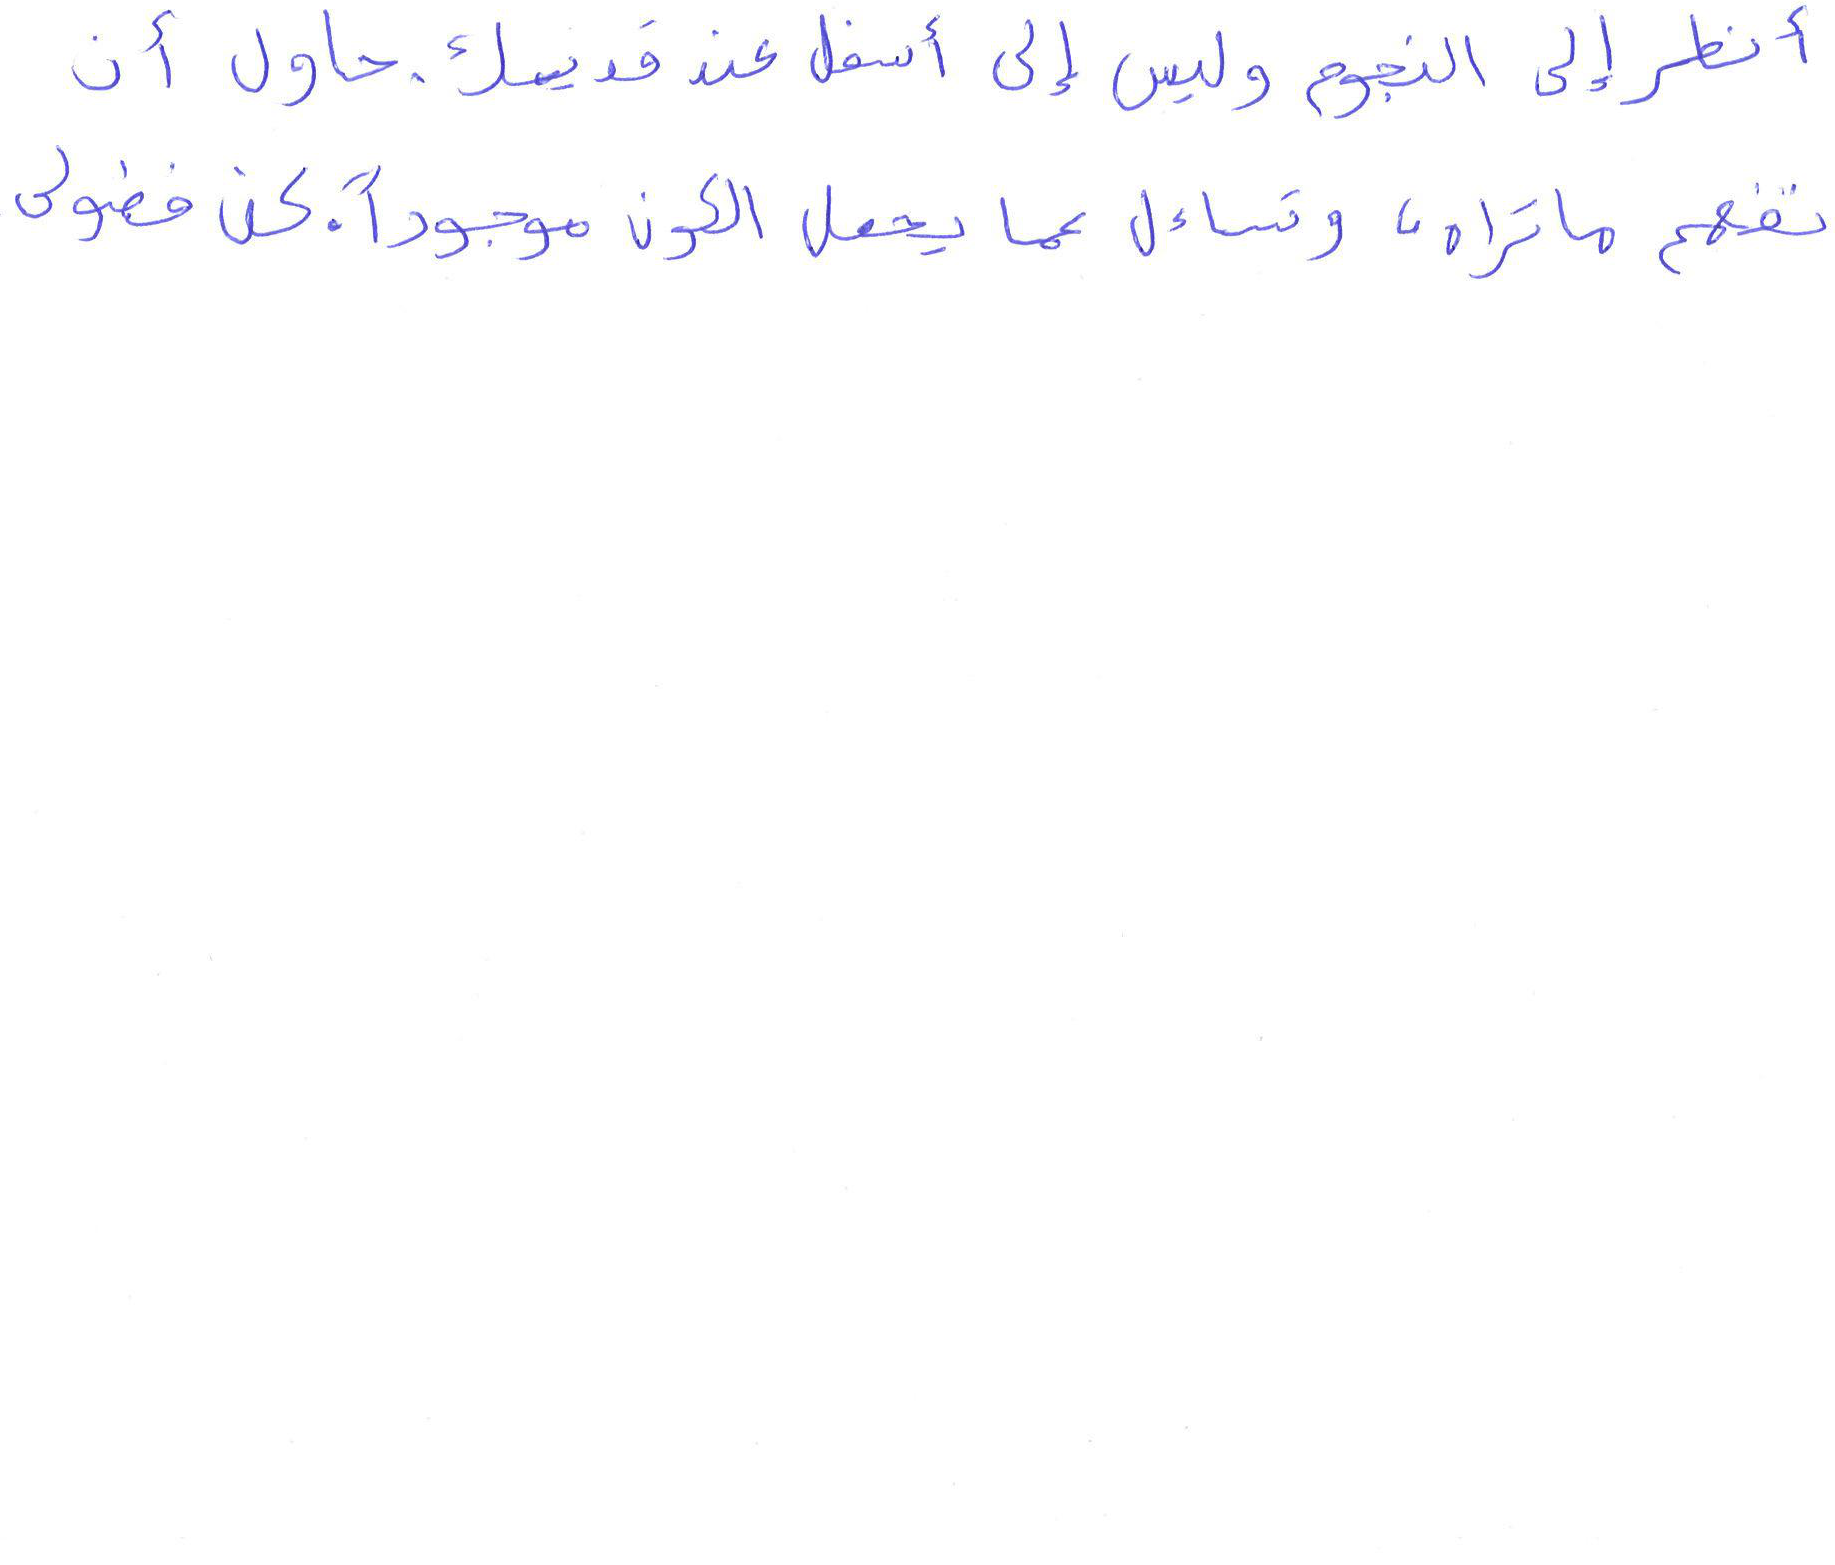 أنظر إلى النجوم وليس إلى أسفل عند قدميك. حاول أن
تفهم ما تراه، وتساءل عما يجعل الكون موجوداً. كن فضولى